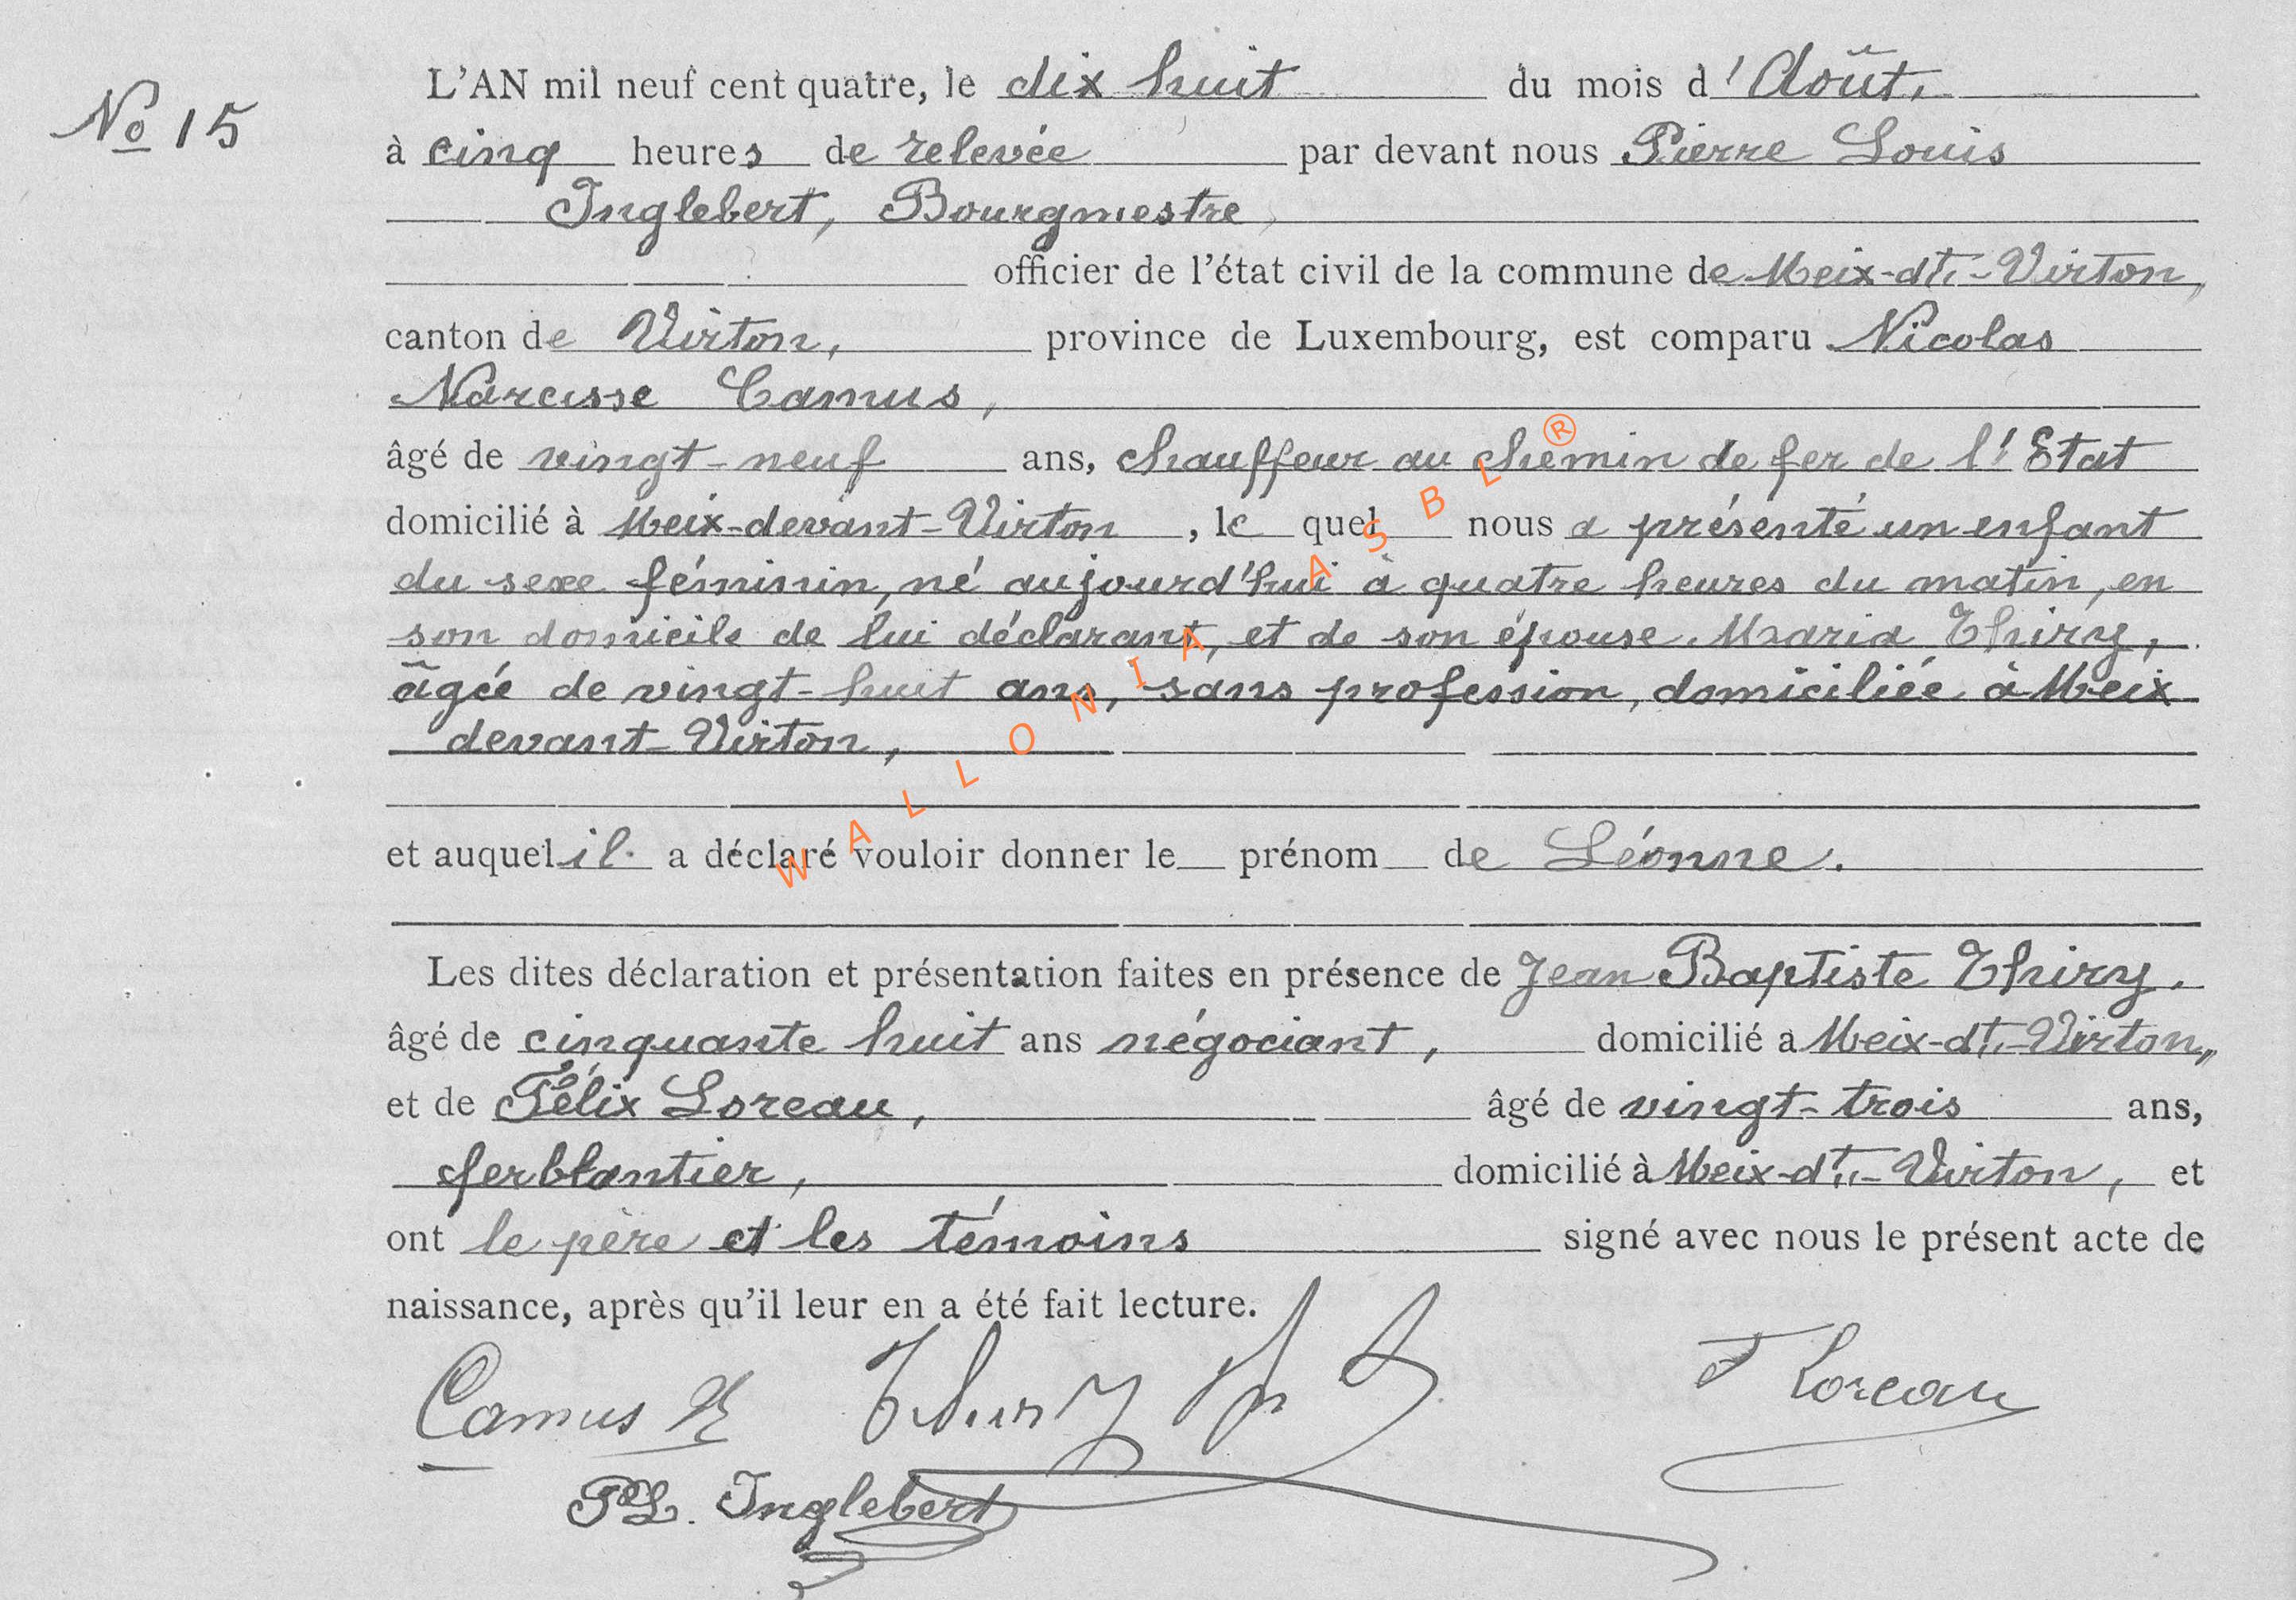 No 15
L'AN mil neuf cent quatre, le dix huit du mois d'Août,
à cinq heures de relevée par devant nous Pierre Louis
Inglebert, Bourgmestre,
officier de l'état civil de la commune de Meix-dt.-Virton,
canton de Virton, province de Luxembourg, est comparu Nicolas
Narcisse Camus,
âgé de vingt-neuf ans, chauffeur au chemin de fer de l'Etat
domicilié à Meix-devant-Virton, le quel nous a présenté un enfant
du sexe féminin, né aujourd'hui à quatre heures du matin, en
son domicile de lui déclarant, et de son épouse Maria Thiry,
âgée de vingt-huit ans, sans profession, domiciliée à Meix
devant-Virton,
et auquel il a déclaré vouloir donner le prénom de Léonne.
Les dites déclaration et présentation faites en présence de Jean Baptiste Thiry.
âgé de cinquante huit ans négociant, domicilié à Meix-dt.-Virton,
et de Félix Loreau, âgé de vingt-trois ans,
ferblantier, domicilié à Meix-dt.-Virton, et
ont le père et les témoins signé avec nous le présent acte de
naissance, après qu'il leur en a été fait lecture.
Camus N Thiry F Loreau
PL. Inglebert
WALLONIA ASBL ®